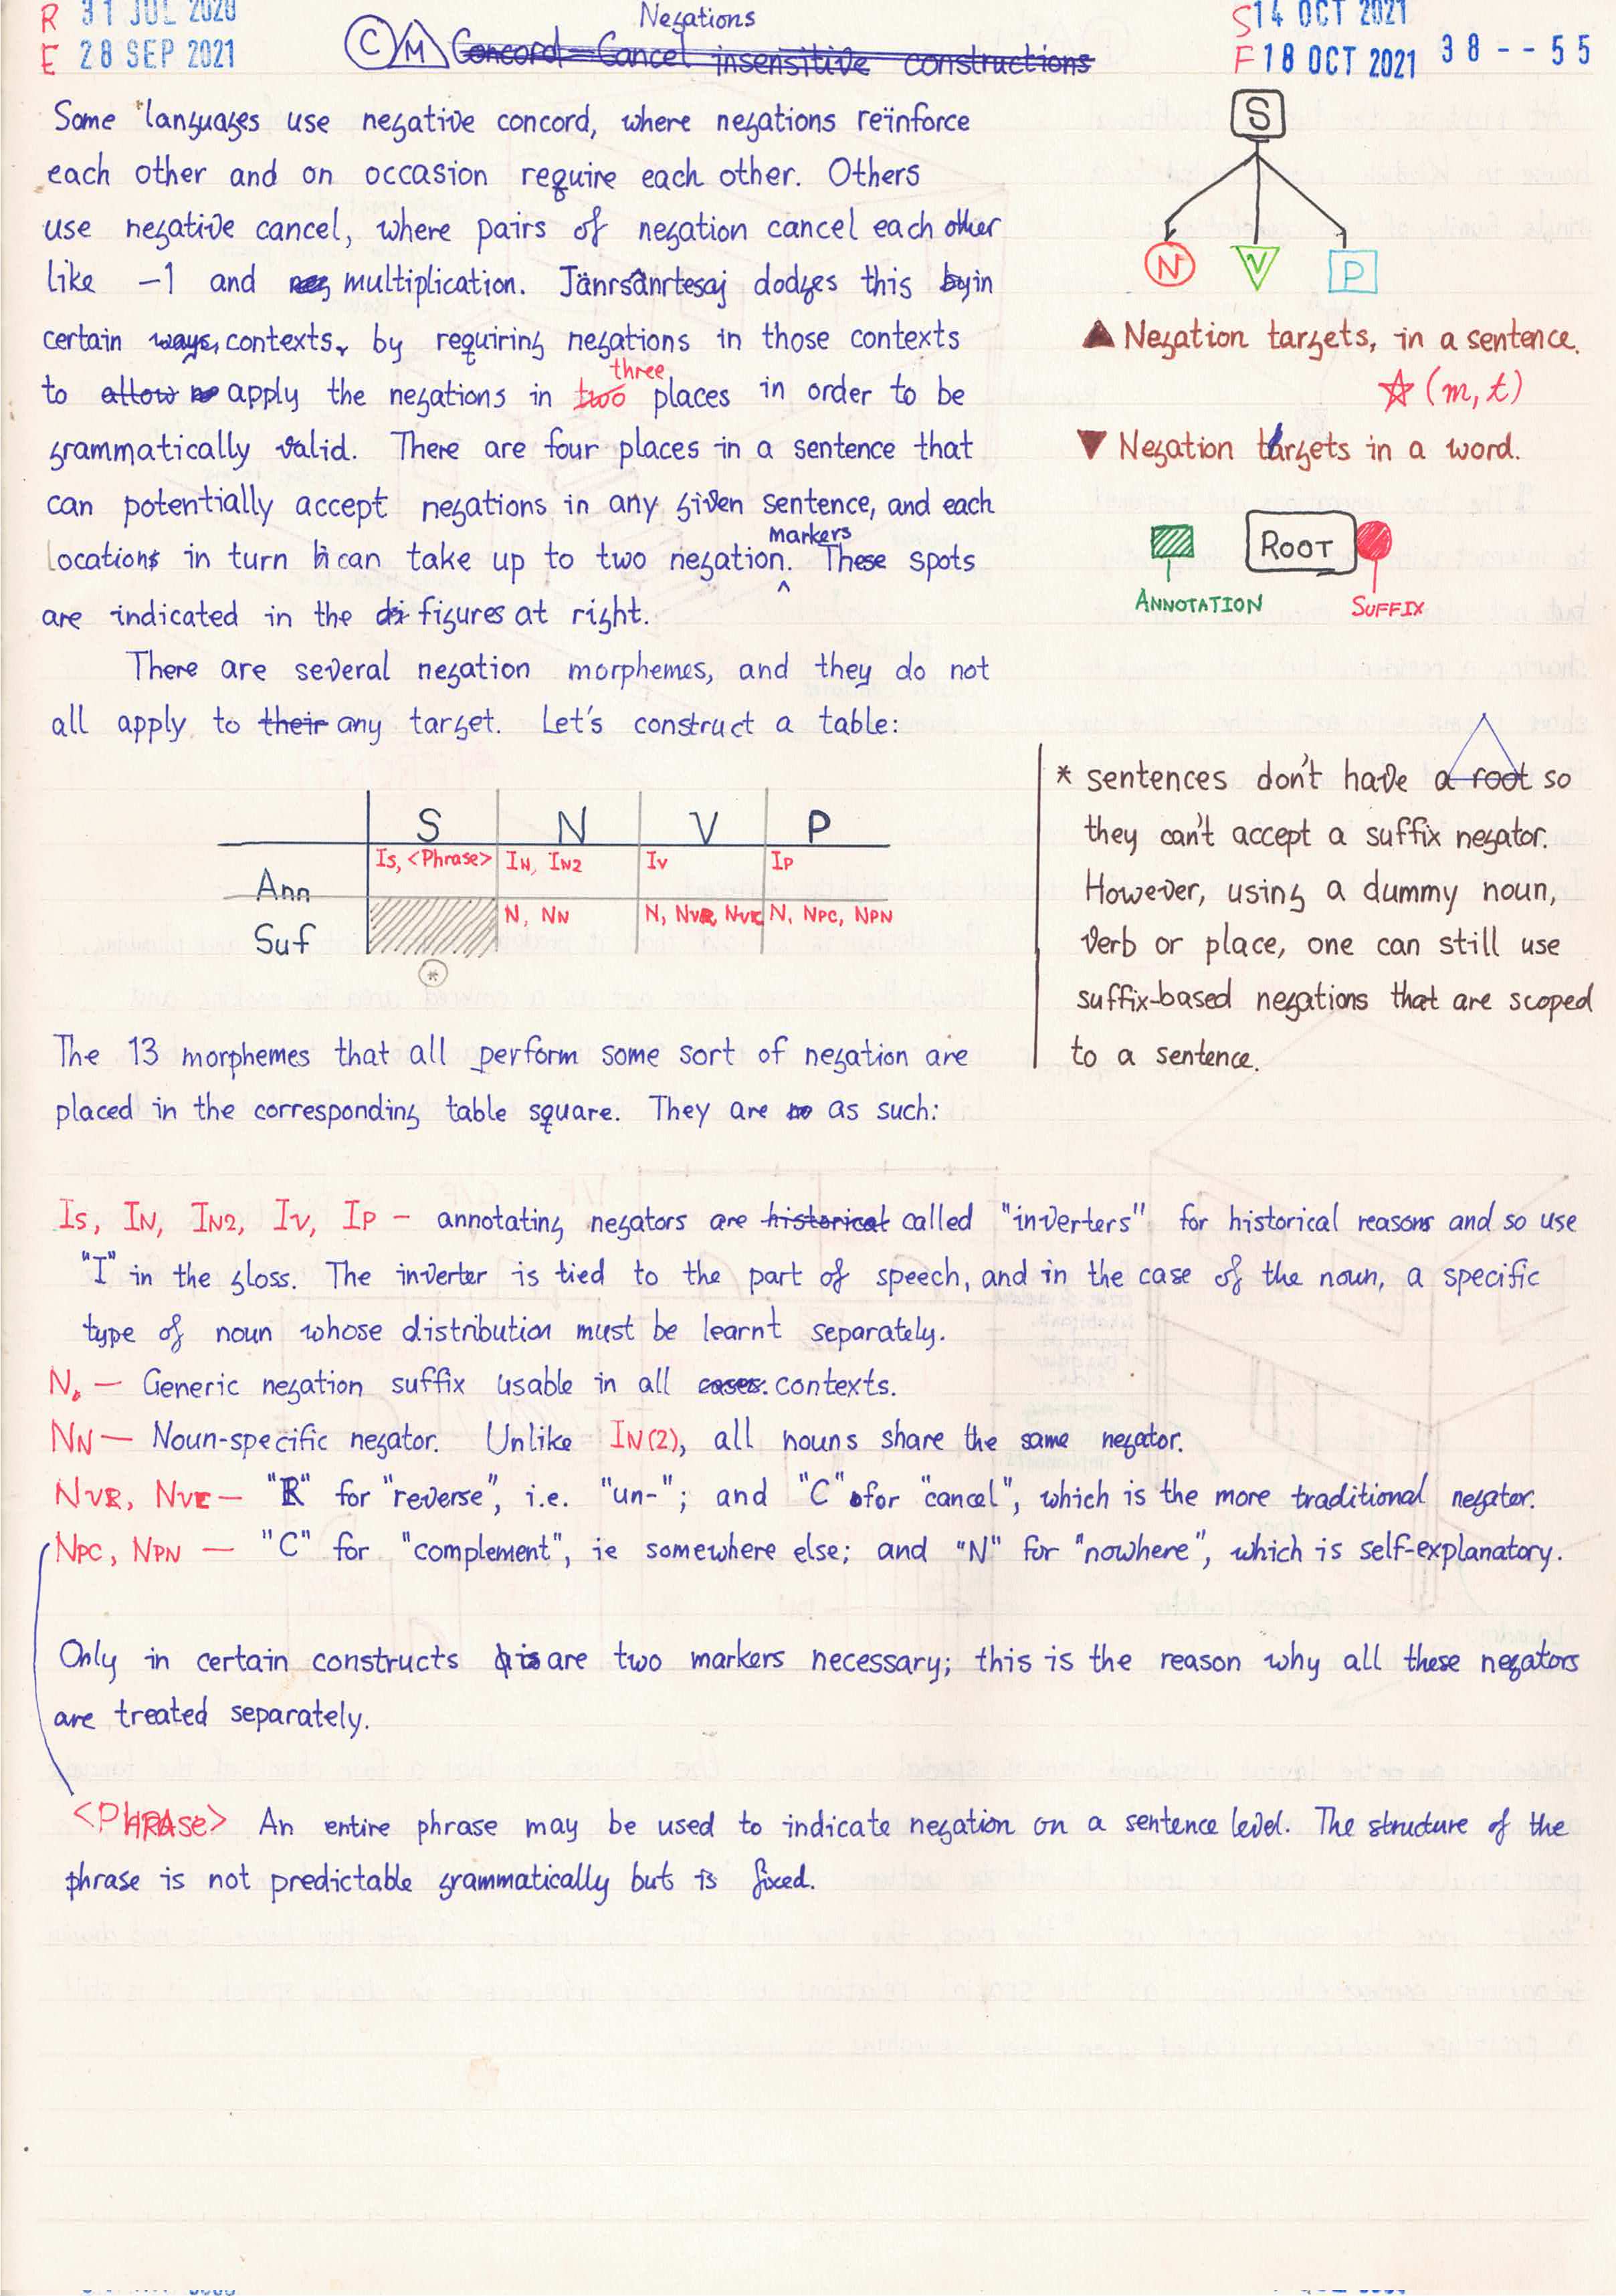 R 31 JUL 2020
E 28 SEP 2021
Negations
C M Concord-Cancel insensitive constructions
S 14 OCT 2021
F 18 OCT 2021 38--55
Some languages use negative concord, where negations reïnforce
each other and on occasion require each other. Others
use negative cancel, where pairs of negation cancel each other
like -1 and neg multiplication. Jänrsânrtesaj dodges this by in
certain ways, contexts, by requiring negations in those contexts
three
to allow no apply the negations in two places in order to be
grammatically valid. There are four places in a sentence that
can potentially accept negations in any given sentence, and each
markers
locations in turn can take up to two negation. These spots
^
are indicated in the di figures at right.
There are several negation morphemes, and they do not
all apply to their any target. Let's construct a table:
S
N V P
▲ Negation targets, in a sentence.
☆ (m, t)
▼ Negation targets in a word.
ROOT
ANNOTATION SUFFIX
S N V P
Ann Is, <Phrase> IN, IN2 IV IP
Suf N, NN N, NVR, NVC N, NPC, NPN
*
* sentences don't have a root so
they can't accept a suffix negator.
However, using a dummy noun,
verb or place, one can still use
suffix-based negations that are scoped
to a sentence.
The 13 morphemes that all perform some sort of negation are
placed in the corresponding table square. They are no as such:
IS, IN, IN2, IV, IP – annotating negators are historical called "inverters" for historical reasons and so use
"I" in the gloss. The inverter is tied to the part of speech, and in the case of the noun, a specific
type of noun whose distribution must be learnt separately.
N. — Generic negation suffix usable in all cases. contexts.
NN — Noun-specific negator. Unlike IN(2), all nouns share the same negator.
NVR, NVC — "R" for "reverse", i.e. "un-"; and "C" for "cancel", which is the more traditional negator.
NPC, NPN — "C" for "complement", ie somewhere else; and "N" for "nowhere", which is self-explanatory.
Only in certain constructs is are two markers necessary; this is the reason why all these negators
are treated separately.
<PHRASE> An entire phrase may be used to indicate negation on a sentence level. The structure of the
phrase is not predictable grammatically but is fixed.